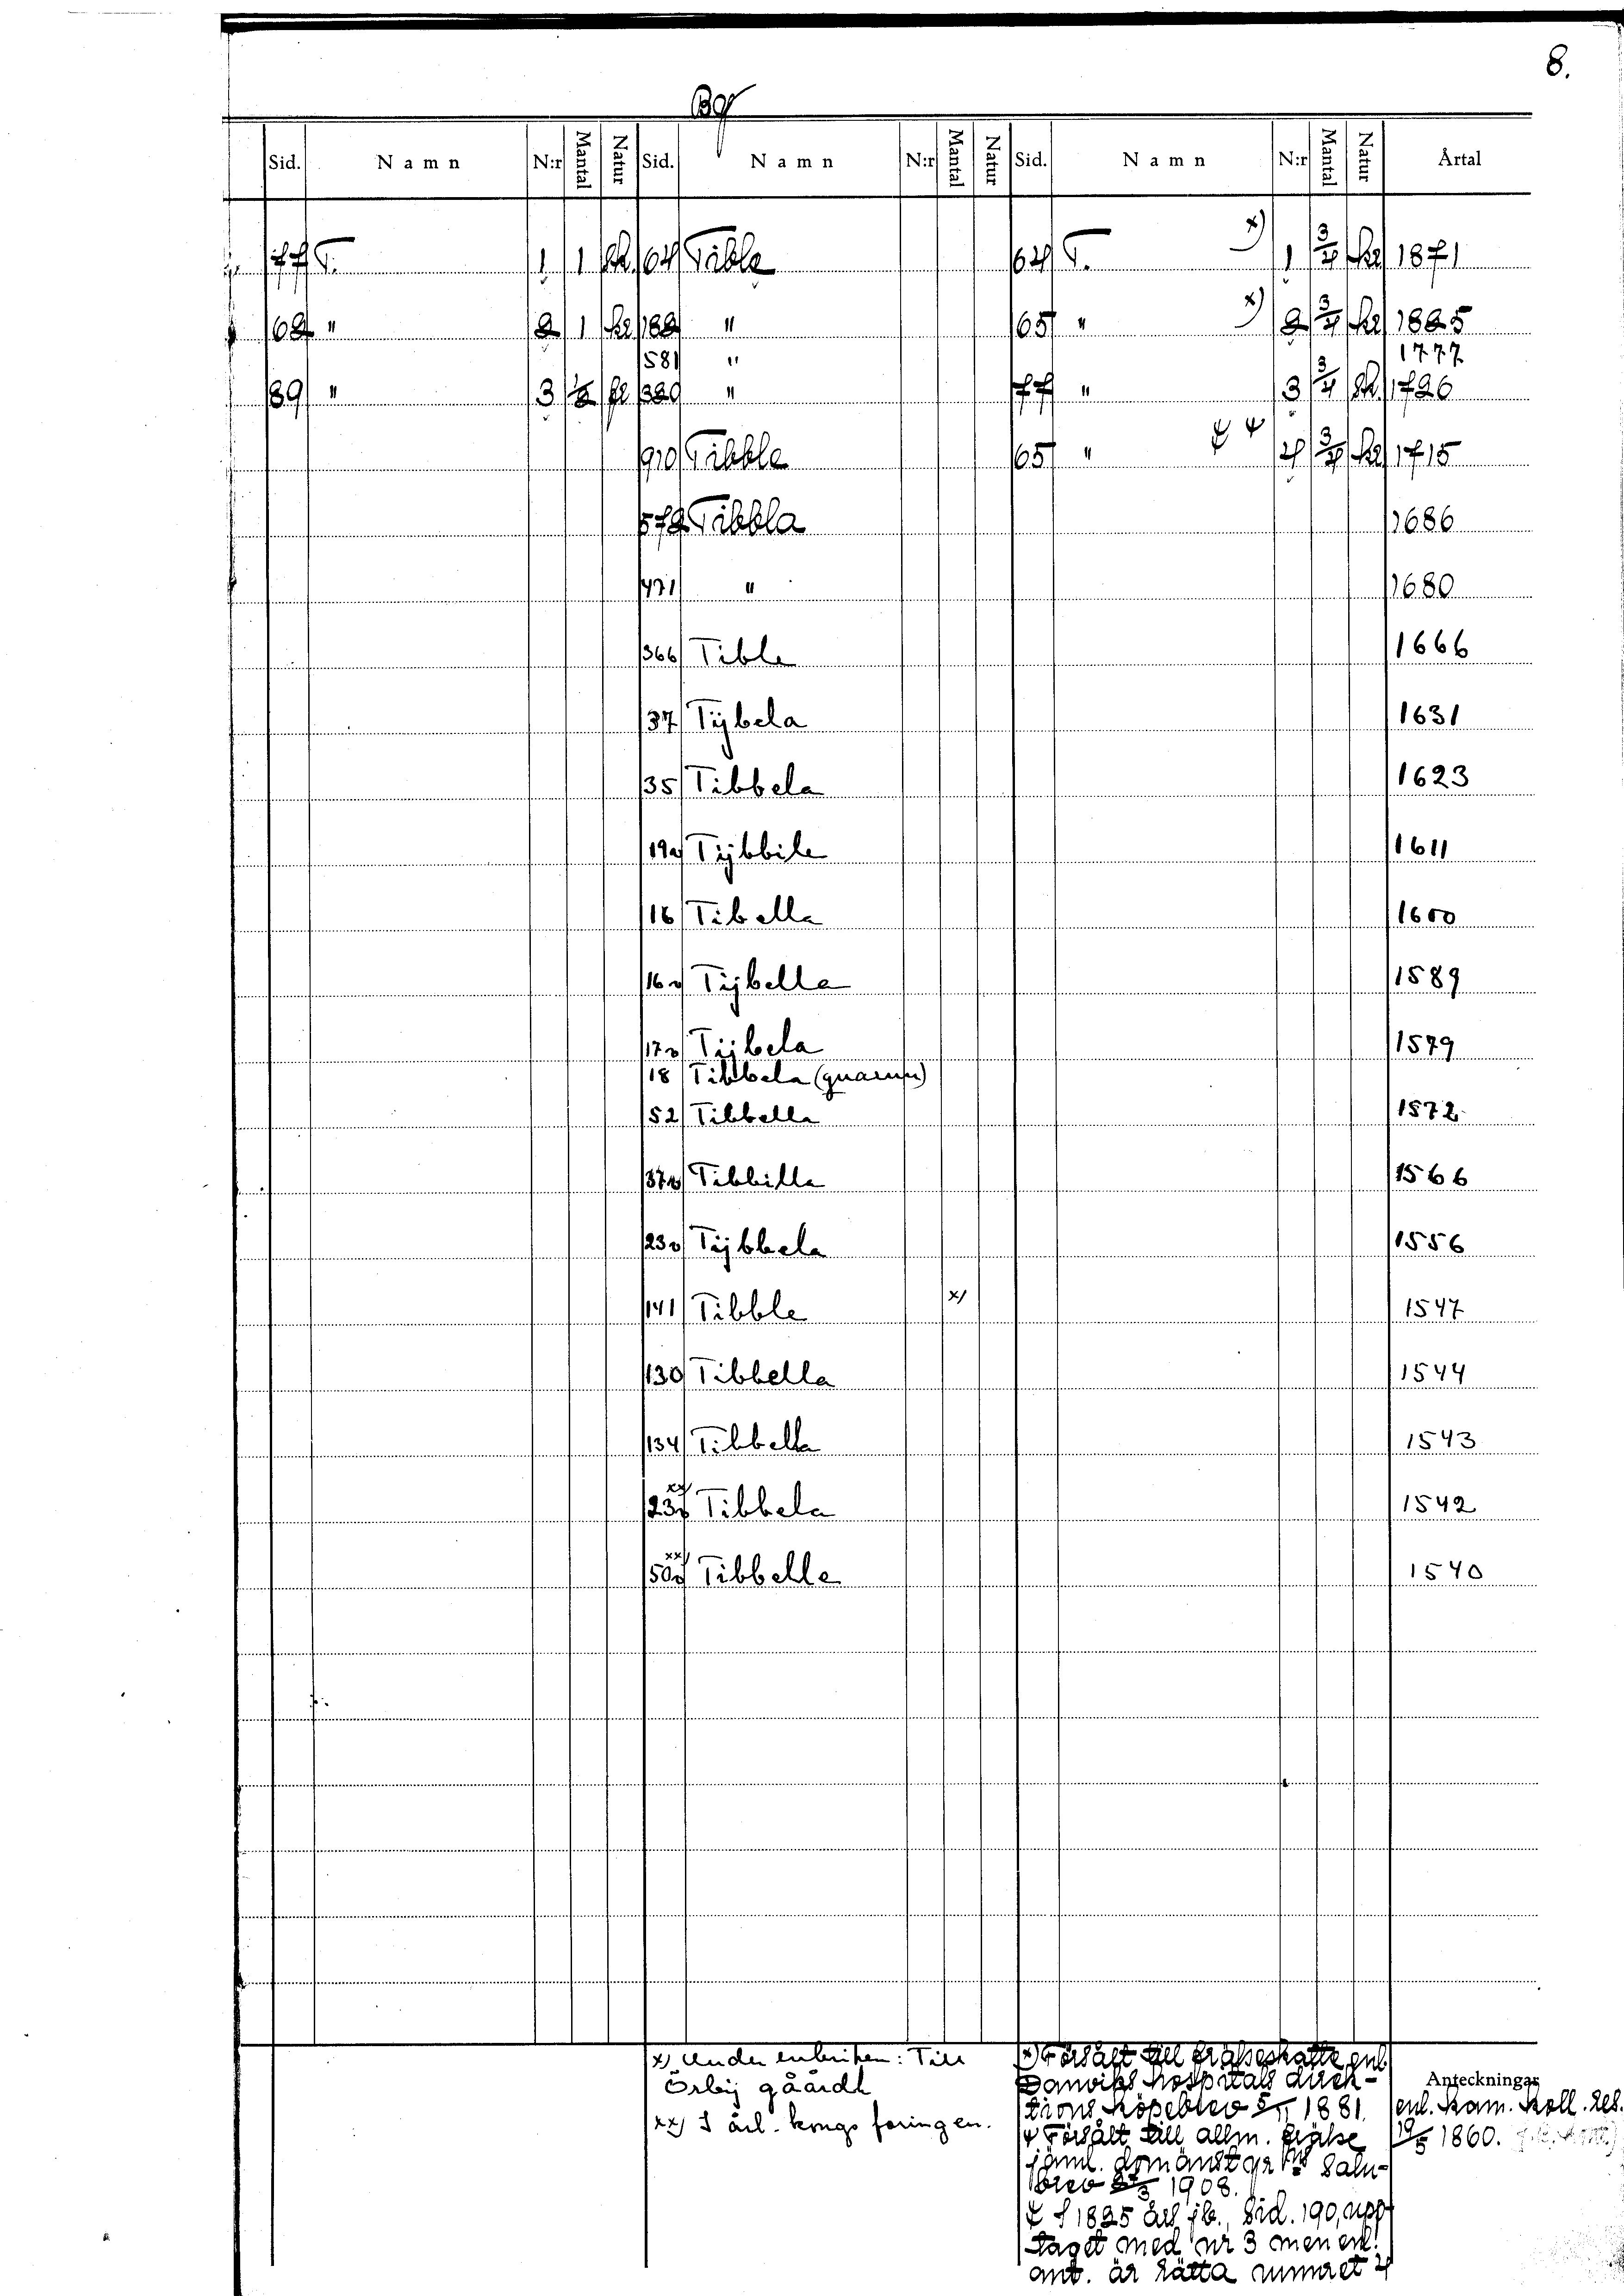 8.
By
Sid. Namn N:r Mantal Natur Sid. Namn N:r Mantal Natur Sid. Namn N:r Mantal Natur Årtal
77 T. 1 1 sk. 64 Tible 64 T. x) 1 3/4 kr 1871
62 " 2 1 kr 188 " 65 " x) 2 3/4 kr 1825
581 " 1777
89 " 3 1/2 fr 320 " 77 " 3 3/4 sk. 1726
910 Tibble 65 " 4 3/4 kr 1715
572 Tibbla 1686
471 " 1680
366 Tible 1666
37 Tijbela 1631
35 Tibbela 1623
19v Tijbbile 1611
16 Tibella 1600
16v Tijbella 1589
17v Tijbela 1579
18 Tibbela (quarnn)
52 Tibbella 1572
37v Tibbilla 1566
23v Tijbbela 1556
141 Tibble x) 1547
130 Tibbella 1544
134 Tibbella 1543
xx)
23v Tibbela 1542
xx)
50v Tibbelle 1540
x) Under rubriken: Till
Örbij gåårdh
xx) I årl. kongs foringen.
x) Försålt till frälseskatte enl.
Danviks hospitals direk-
tions köpebrev 5/11 1881.
Försålt till allm. frälse
jäml. domänstyr:ns salu-
brev 27/3 1908.
I 1825 års jb., sid. 190, upp-
taget med nr 3 men enl.
ant. är rätta numret 4
Anteckningar
enl. Kam. Koll. res.
19/5 1860.